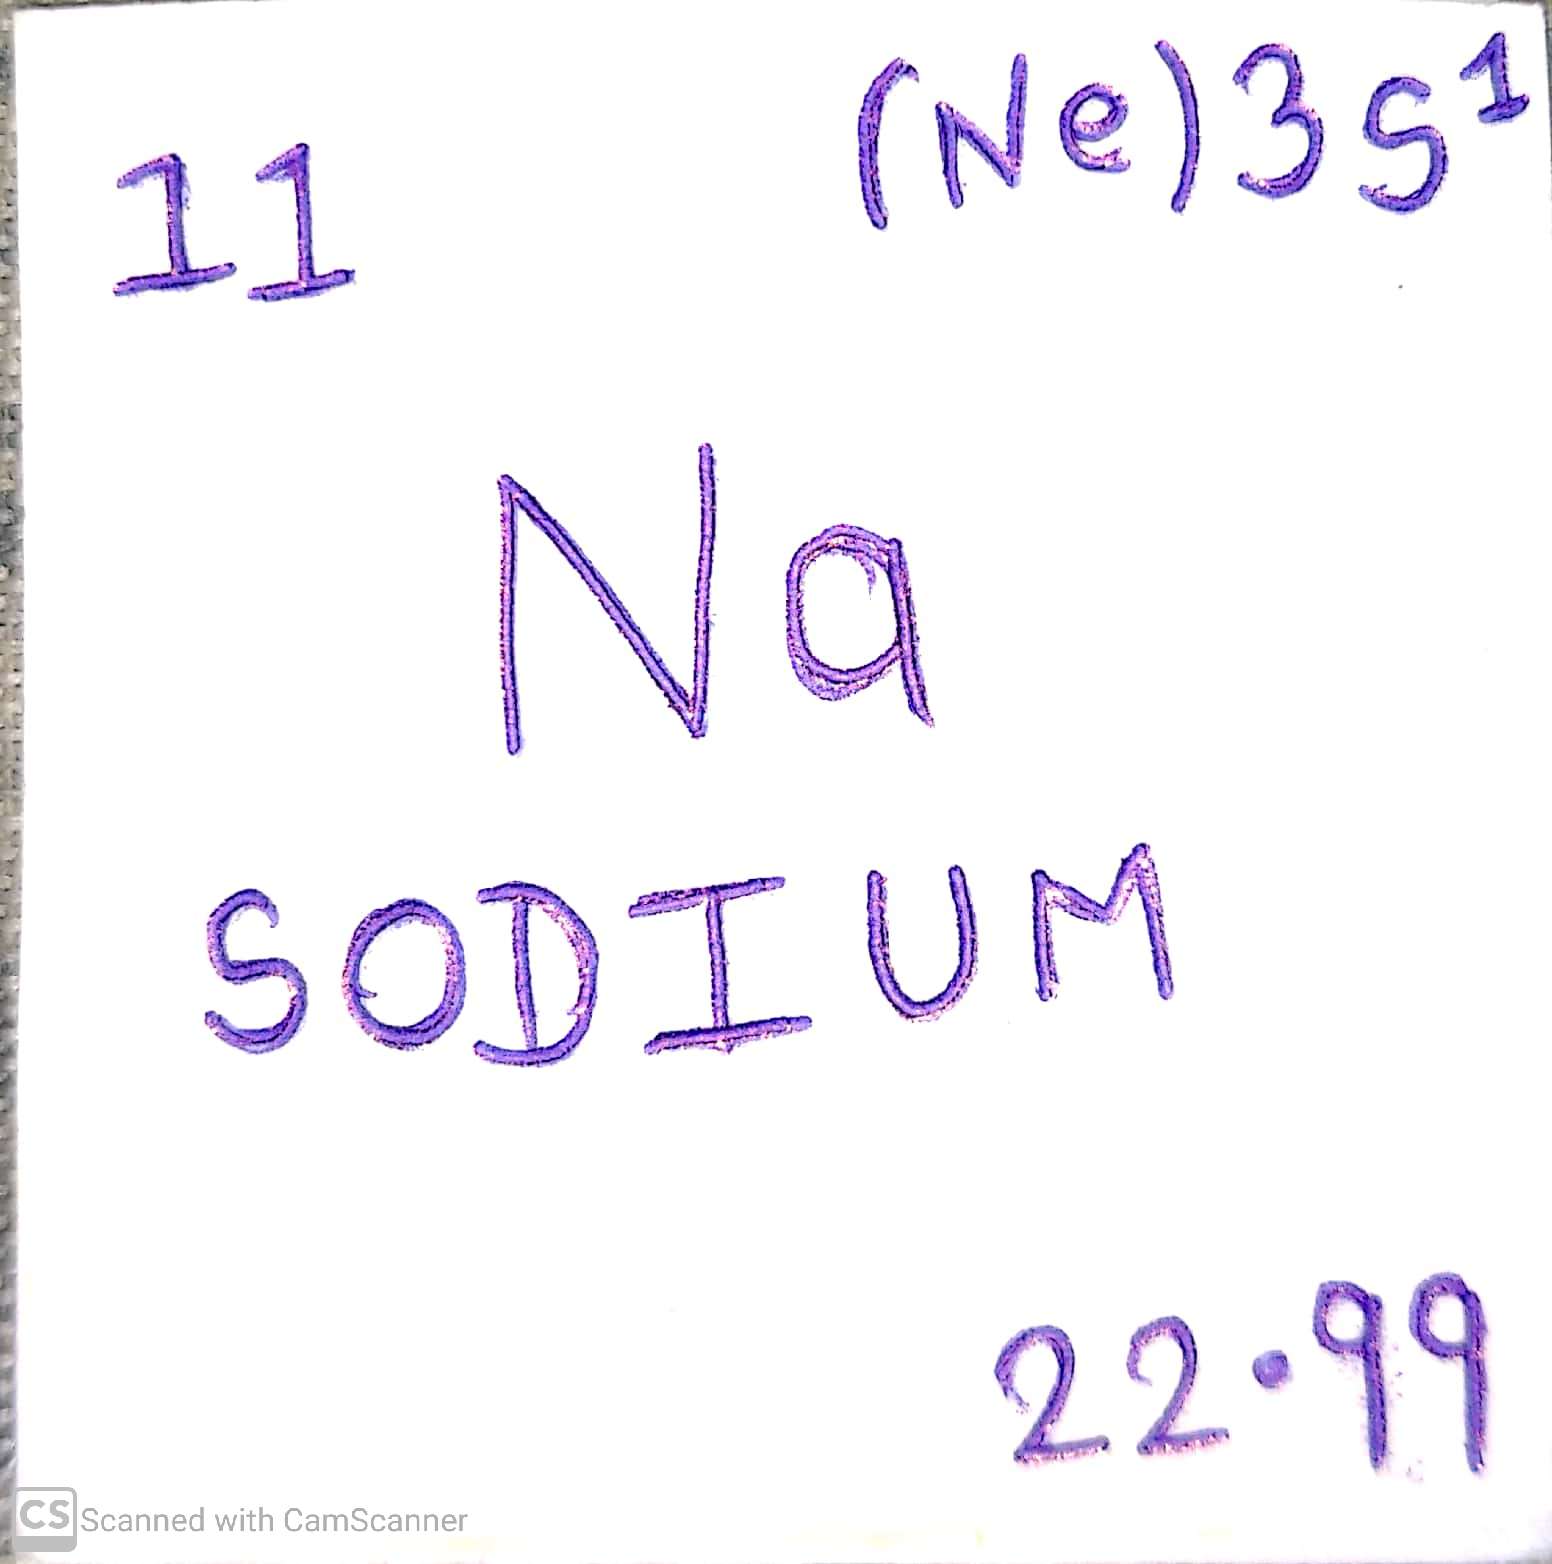 11
(Ne)3s¹
Na
SODIUM
22.99
CS Scanned with CamScanner